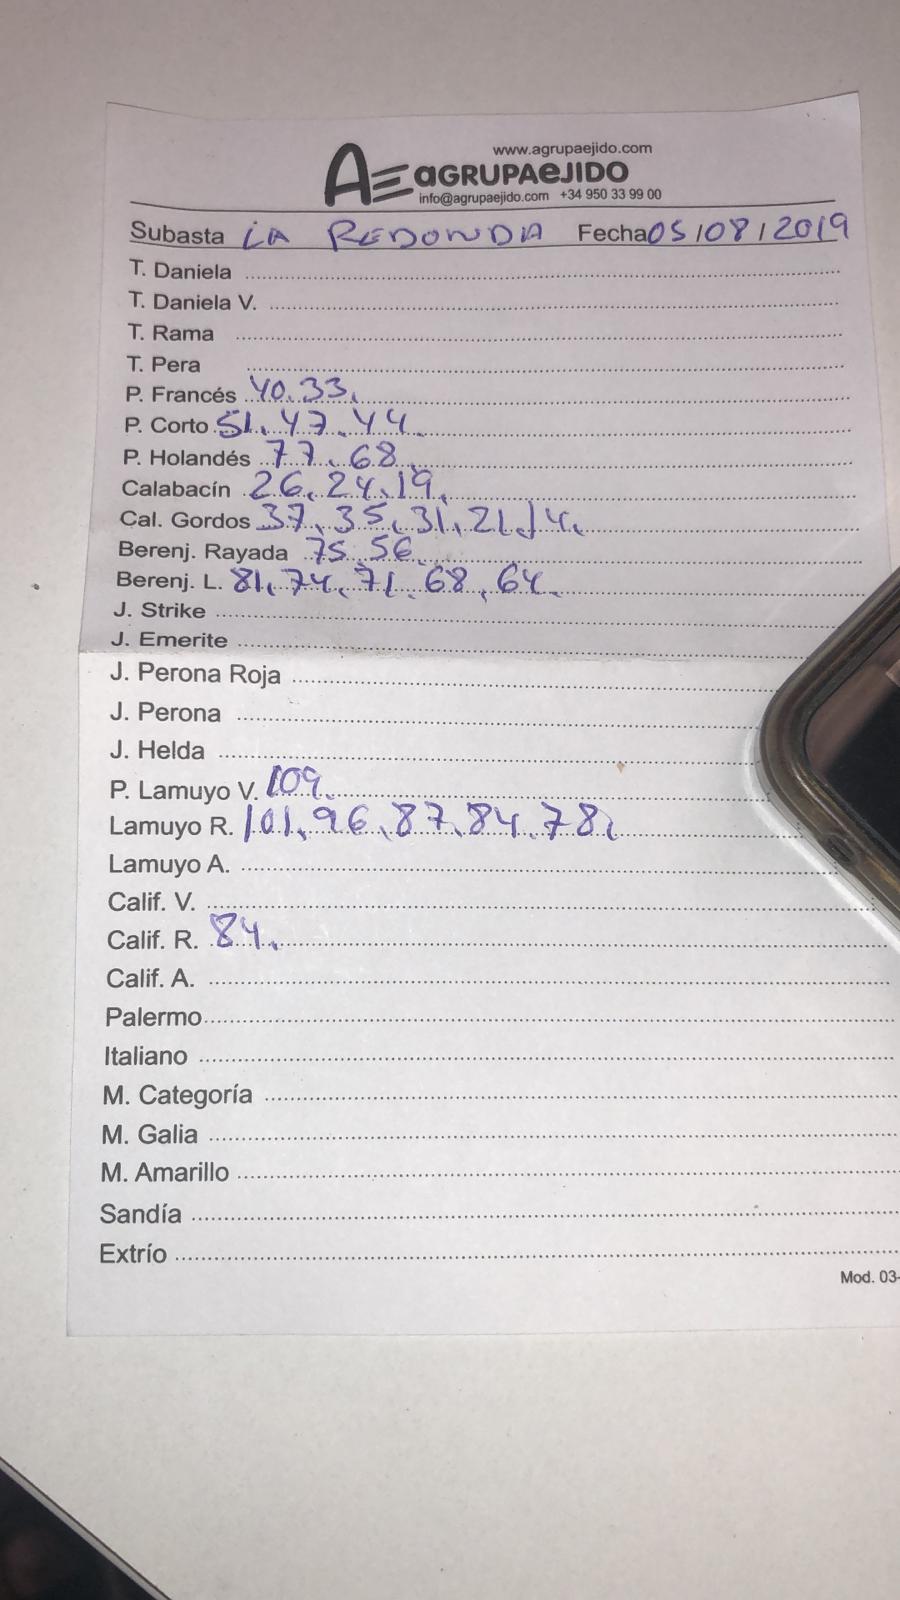 www.agrupaejido.com
AE aGRUPAeJIDO
info@agrupaejido.com +34 950 33 99 00
Subasta LA REDONDA Fecha 05/08/2019
T. Daniela
T. Daniela V.
T. Rama
T. Pera
P. Francés 40. 33.
P. Corto 51. 47. 44.
P. Holandés 77. 68.
Calabacín 26. 24. 19.
Cal. Gordos 37. 35. 31. 21. 14.
Berenj. Rayada 75. 56.
Berenj. L. 81. 74. 71. 68. 64.
J. Strike
J. Emerite
J. Perona Roja
J. Perona
J. Helda
P. Lamuyo V. 109.
Lamuyo R. 101. 96. 87. 84. 78.
Lamuyo A.
Calif. V.
Calif. R. 84.
Calif. A.
Palermo
Italiano
M. Categoría
M. Galia
M. Amarillo
Sandía
Extrío
Mod. 03-